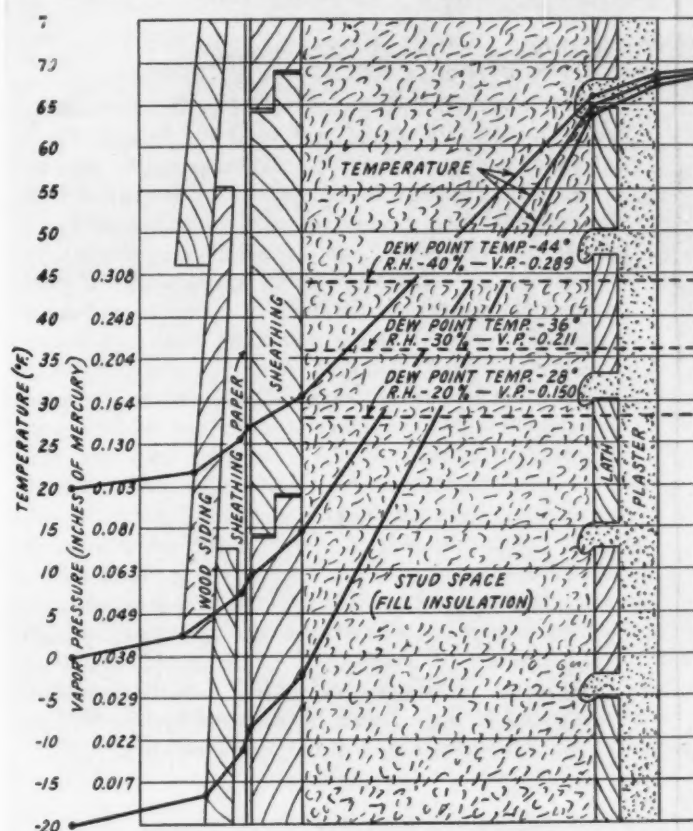 70
65
60
55
50
45 0.308
40 0.248
35 0.204
30 0.164
25 0.130
20 0.103
15 0.081
10 0.063
5 0.049
0 0.038
-5 0.029
-10 0.022
-15 0.017
-20
TEMPERATURE (°F.)
VAPOR PRESSURE (INCHES OF MERCURY)
WOOD SIDING
SHEATHING PAPER
SHEATHING
TEMPERATURE
DEW POINT TEMP.-44°
R.H.-40% — V.P.-0.289
DEW POINT TEMP.-36°
R.H.-30% — V.P.-0.211
DEW POINT TEMP.-28°
R.H.-20% — V.P.-0.150
STUD SPACE
(FILL INSULATION)
LATH
PLASTER